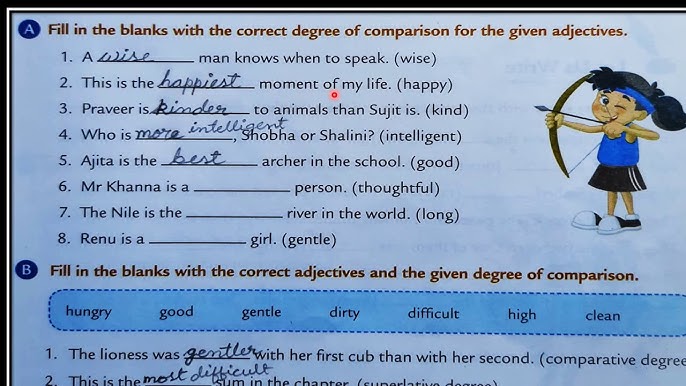 A Fill in the blanks with the correct degree of comparison for the given adjectives.
1. A wise man knows when to speak. (wise)
2. This is the happiest moment of my life. (happy)
3. Praveer is kinder to animals than Sujit is. (kind)
4. Who is more intelligent, Shobha or Shalini? (intelligent)
5. Ajita is the best archer in the school. (good)
6. Mr Khanna is a __________ person. (thoughtful)
7. The Nile is the __________ river in the world. (long)
8. Renu is a __________ girl. (gentle)
B Fill in the blanks with the correct adjectives and the given degree of comparison.
hungry good gentle dirty difficult high clean
1. The lioness was gentler with her first cub than with her second. (comparative degree
2. This is the most difficult sum in the chapter. (superlative degree)